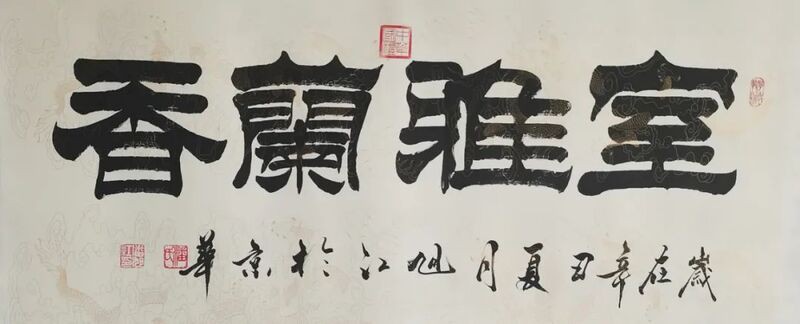 室雅蘭香
歲在辛丑夏月旭江於京華